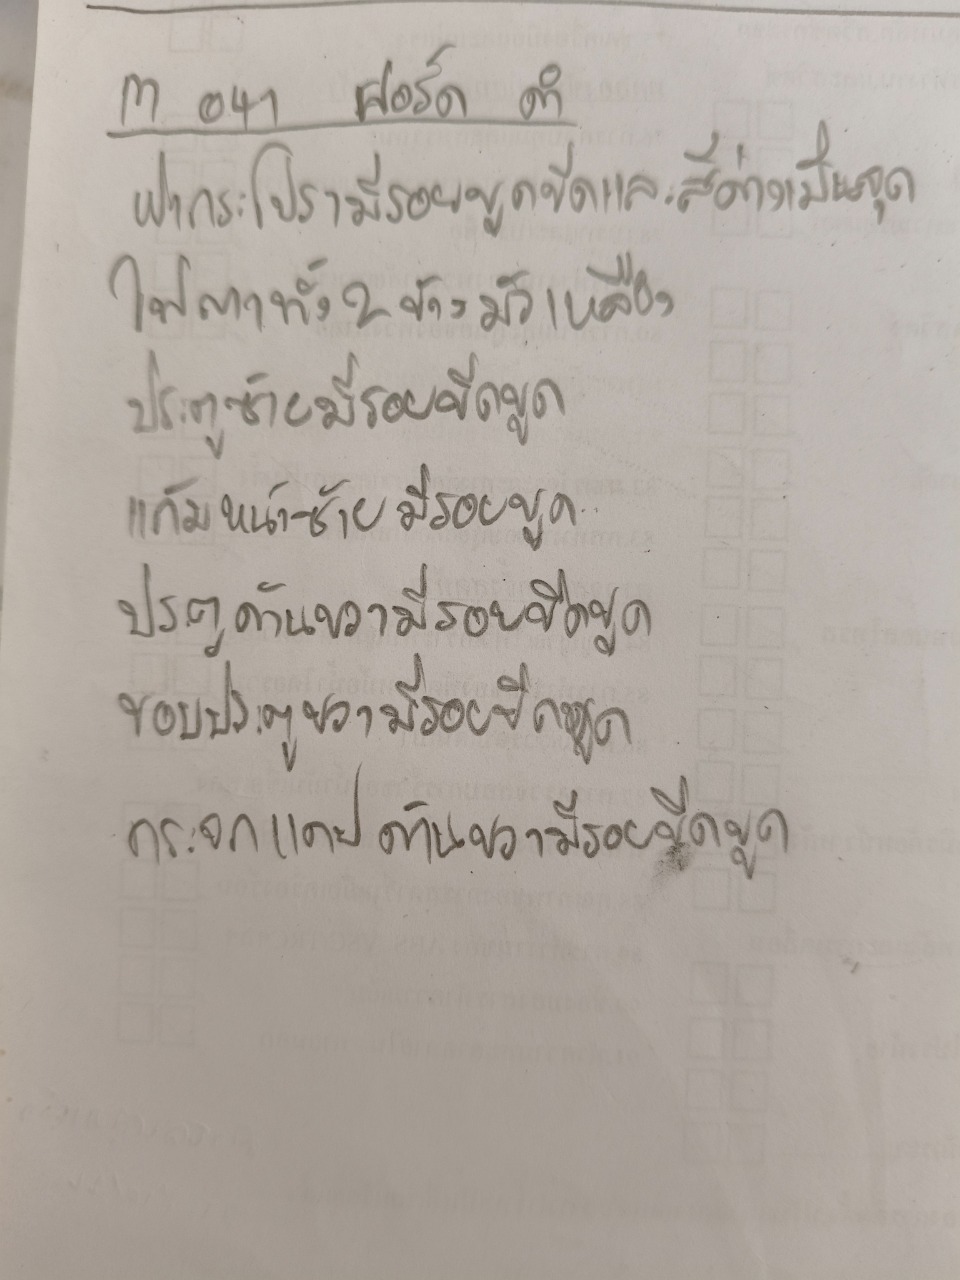 M 041 ฟอร์ด ดำ
ฝากระโปรามีรอยขูดขีดและสีด่างเป็นจุด
ไฟตาทั้ง 2 ข้างมัวเหลือง
ประตูซ้ายมีรอยขีดขูด
แก้มหน้าซ้ายมีรอยขูด
ปรตูด้านขวามีรอยขีดขูด
ขอบประตูขวามีรอยขีดขูด
กระจกแคปด้านขวามีรอยขีดขูด